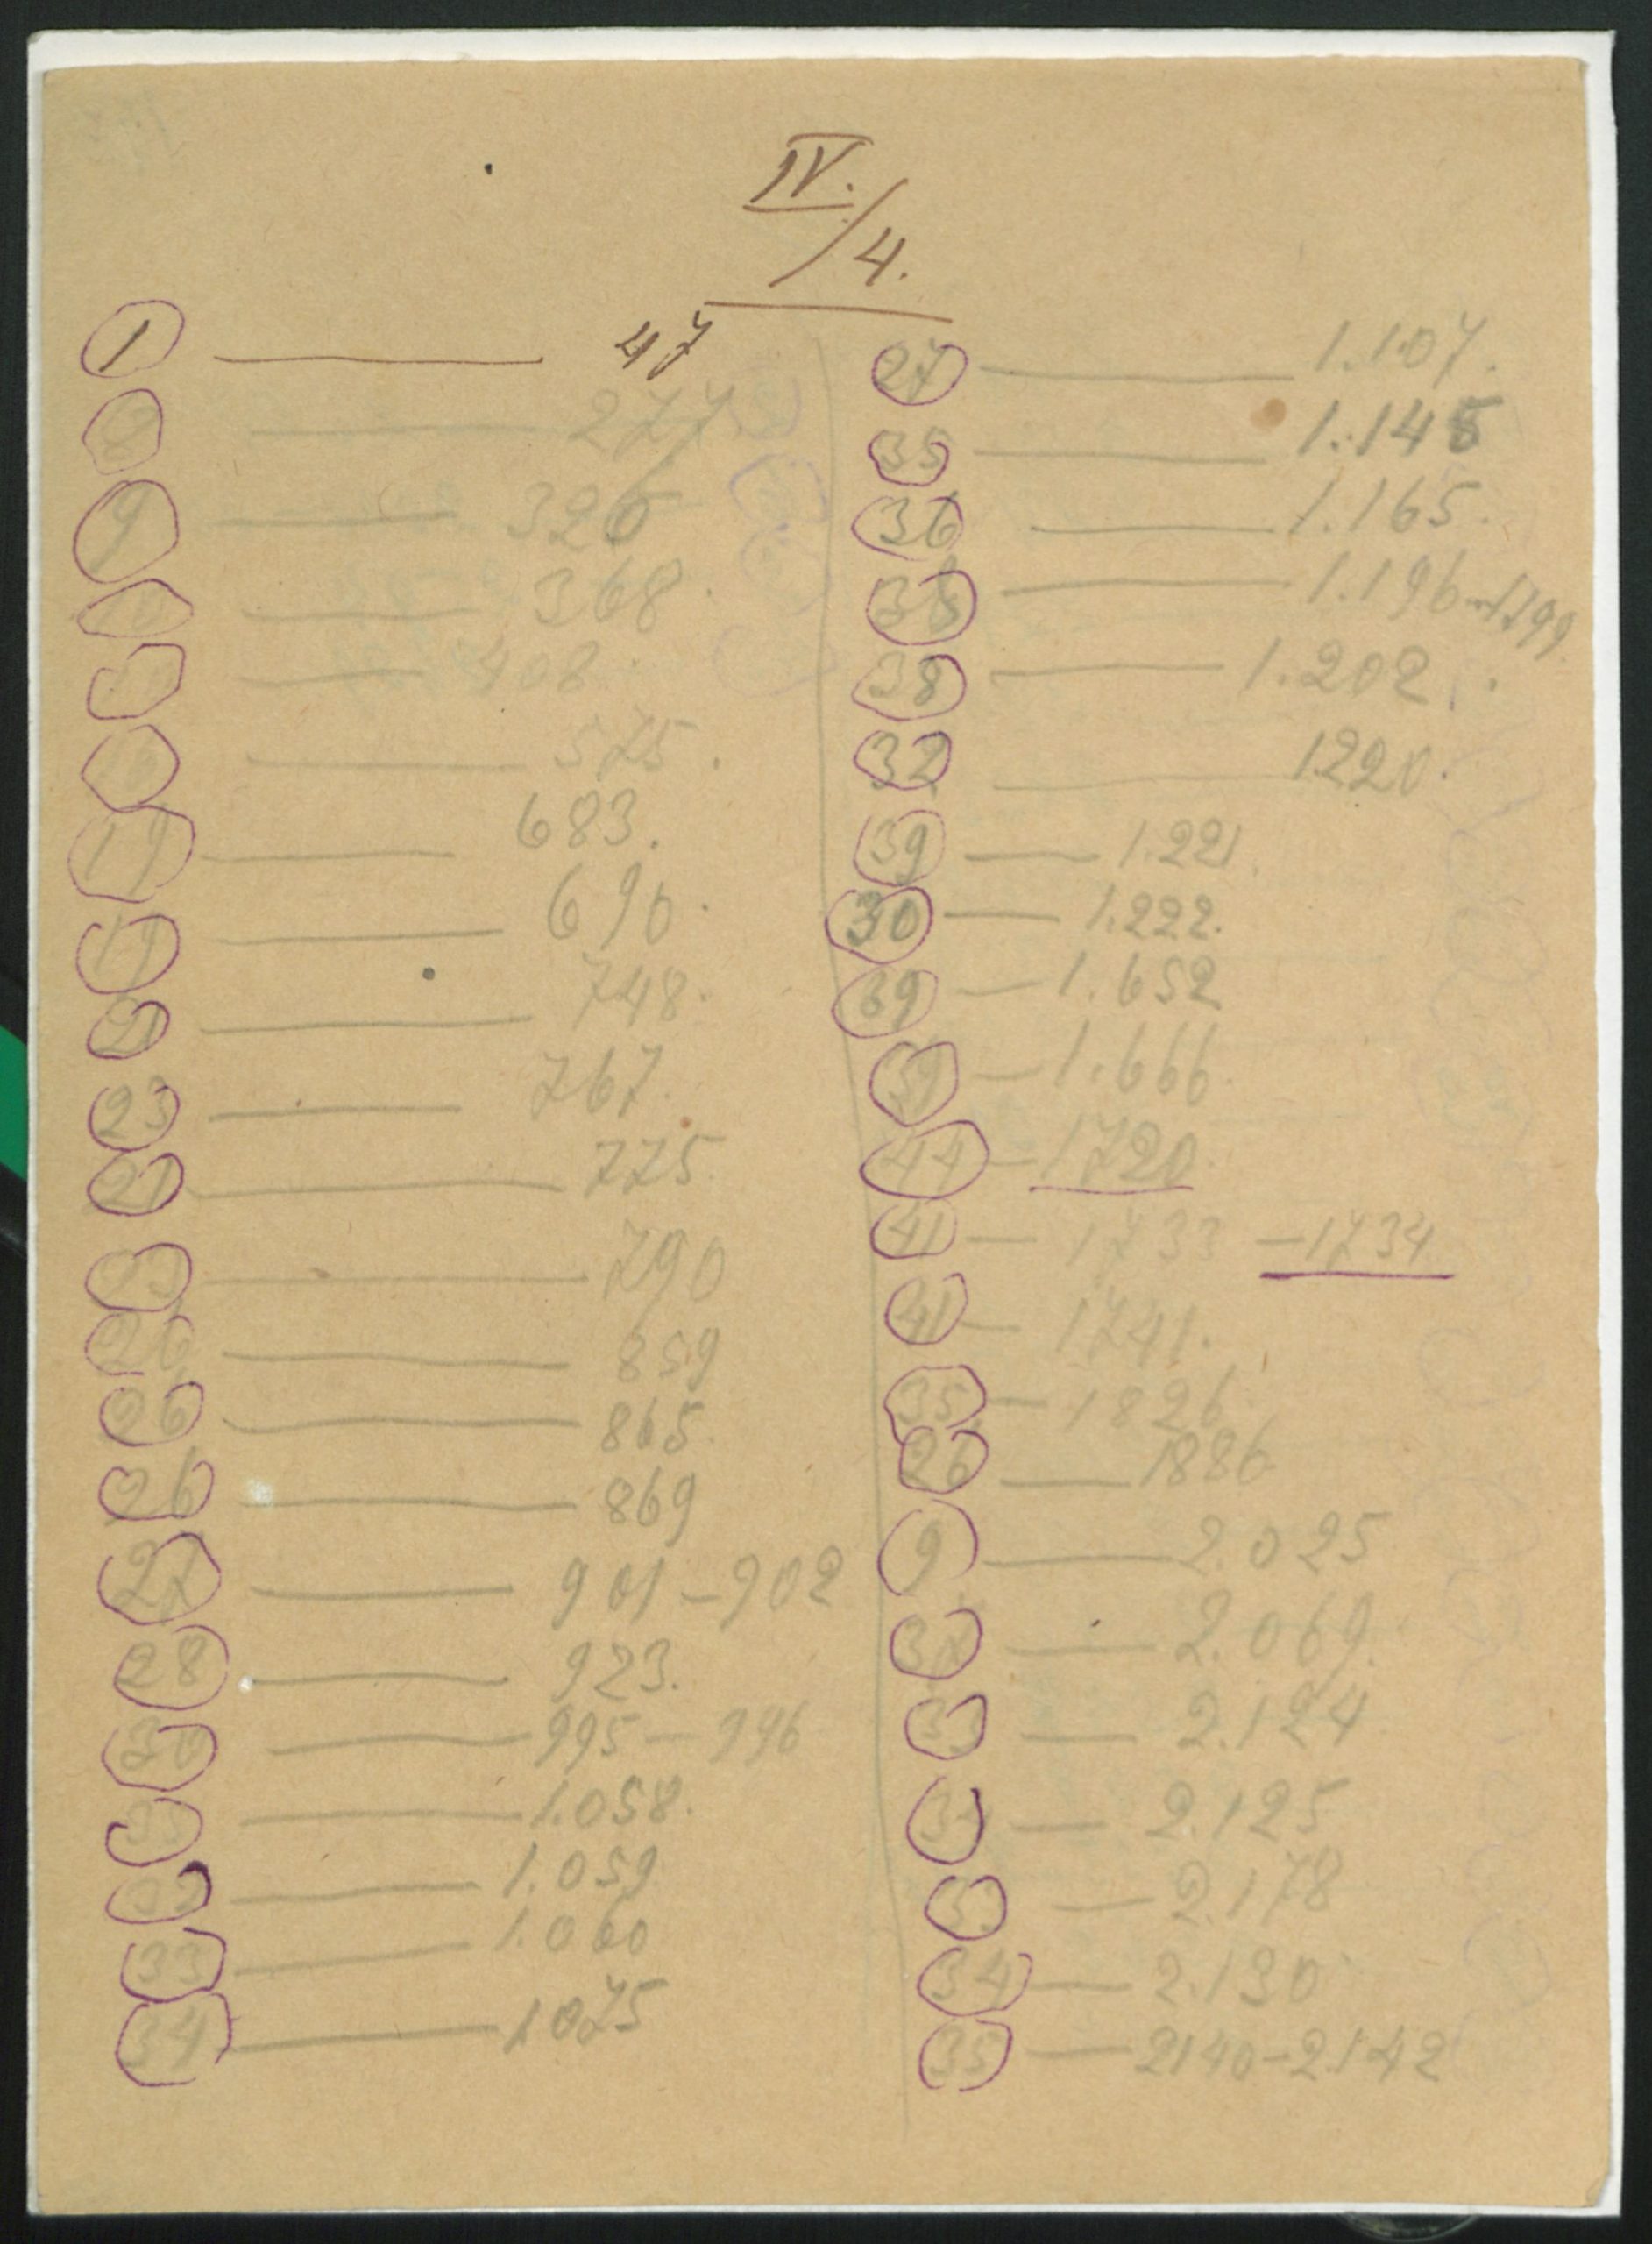 IV./4.
1 — 47
8 — 277
9 — 326
— 368.
— 408.
— 575.
19 — 683.
19 — 690.
21 — 748.
23 — 767.
21 — 775.
23 — 790
26 — 859
26 — 865.
26 — 869
27 — 901 – 902
28 — 923.
30 — 995 – 996
33 — 1.058.
33 — 1.059
33 — 1.060
34 — 1075
27 — 1.107.
35 — 1.145
36 — 1.165.
38 — 1.196 – 1199
38 — 1.202.
32 — 1220.
39 — 1.221.
30 — 1.222.
39 — 1.652
39 — 1.666.
44 — 1720
41 — 1733 – 1734
41 — 1741.
35 — 1826.
26 — 1886
9 — 2.025
32 — 2.069.
— 2.124
— 2.125
— 2.178
34 — 2.130
35 — 2140 – 2142